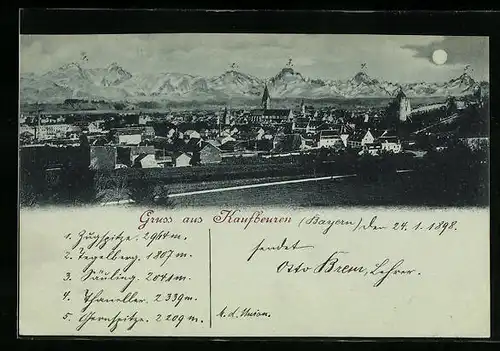 Gruss aus Kaufbeuren (Bayern) Den 24.1.1898.
1. Zugspitze. 2964 m.
2. Tegelberg. 1807 m.
3. Säuling. 2041 m.
4. Thaneller. 2339 m.
5. Gernspitze. 2209 m.
sendet
Otto Brem, Lehrer.